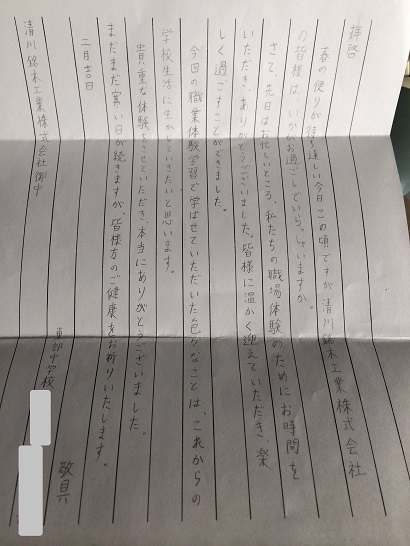 拝啓
春の便りが待ち遠しい今日この頃ですが清川銘木工業株式会社
の皆様はいかがお過ごしでいらっしゃいますか。
さて、先日はお忙しいところ、私たちの職場体験のためにお時間を
いただき、ありがとうございました。皆様に温かく迎えていただき、楽
しく過ごすことができました。
今回の職業体験学習で学ばせていただいた色々なことは、これからの
学校生活に生かしていきたいと思います。
貴重な体験をさせていただき、本当にありがとうございました。
まだまだ寒い日が続きますが、皆様方のご健康をお祈りいたします。
敬具
二月吉日
東部中学校
清川銘木工業株式会社御中